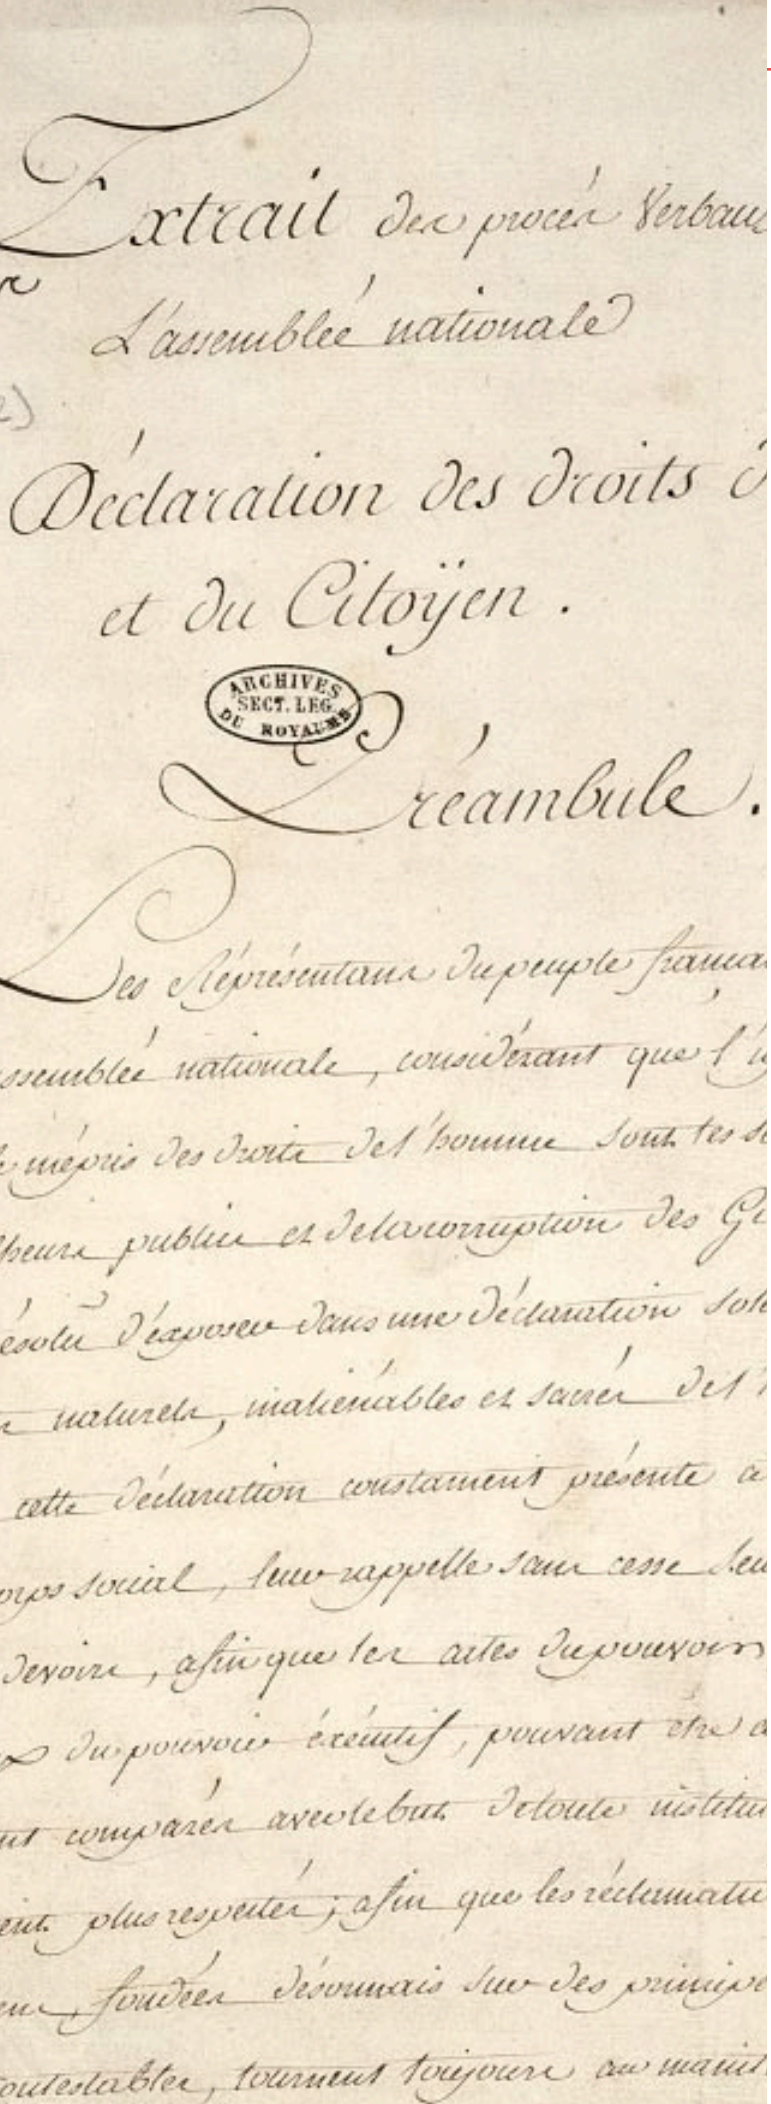 Extrait des procès Verbaux
L'assemblée nationale
Déclaration des droits d
et du Citoÿen.
ARCHIVES
SECT. LEG.
DU ROYAUME
Préambule.
Les Réprésentans du peuple françai
ssemblée nationale, considérant que l'ig
mépris des droits de l'homme sont les s
heurs publics et de la corruption des G
ésolu d'éxposer dans une déclaration sol
naturels, inaliénables et sacrés de l'h
cette déclaration constament présente a
orps social, leur rappelle sans cesse leu
devoirs, afin que les actes du pouvoir
du pouvoir éxécutif, pouvant être à
nt comparés avec le but de toute institu
ent plus respectés; afin que les réclamati
ens, fondées désormais sur des principe
contestables, tournent toujours au maint